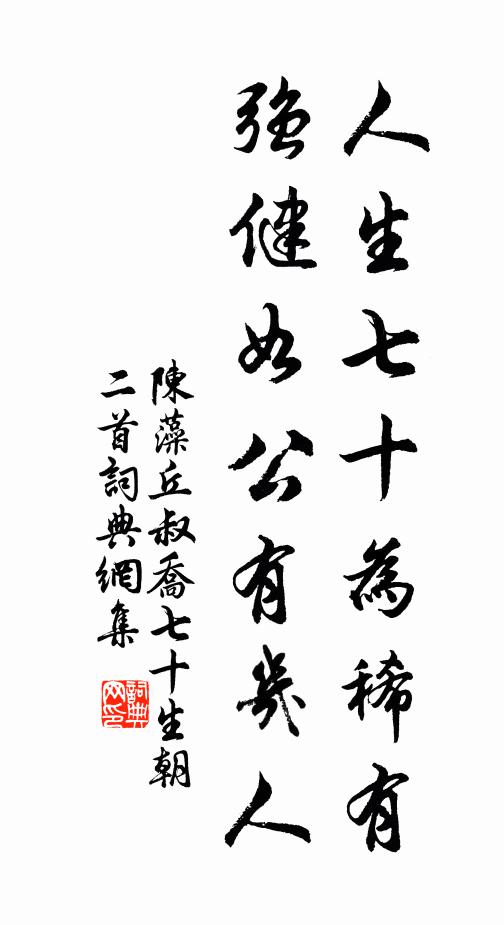 人生七十為稀有
強健如公有幾人
陳藻丘叔喬七十生朝
二首詞典網集
詞典
网印